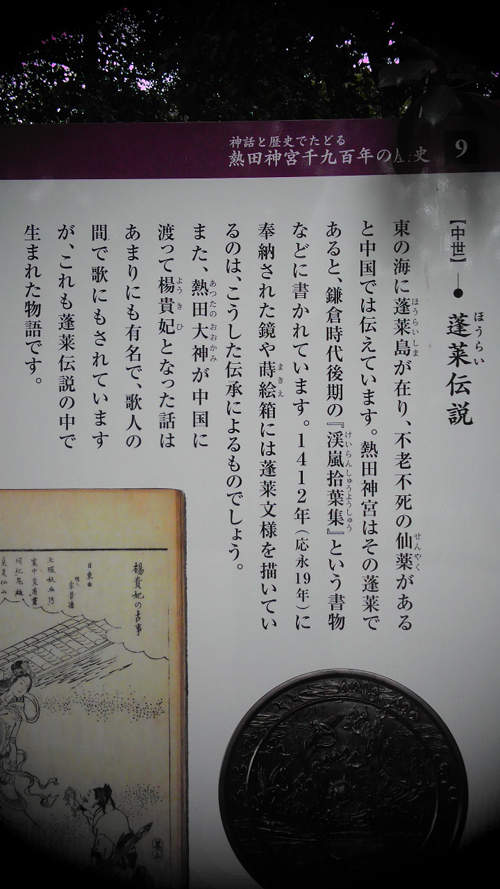 神話と歴史でたどる
熱田神宮千九百年の歴史
9
【中世】─●蓬莱伝説
ほうらい
東の海に蓬莱島が在り、不老不死の仙薬がある
ほうらいしま せんやく
と中国では伝えています。熱田神宮はその蓬莱で
あると、鎌倉時代後期の『渓嵐拾葉集』という書物
けいらんしゅうようしゅう
などに書かれています。1412年(応永19年)に
奉納された鏡や蒔絵箱には蓬莱文様を描いてい
まきえ
るのは、こうした伝承によるものでしょう。
また、熱田大神が中国に
あつたのおおかみ
渡って楊貴妃となった話は
ようきひ
あまりにも有名で、歌人の
間で歌にもされています
が、これも蓬莱伝説の中で
生まれた物語です。
楊貴妃の古事